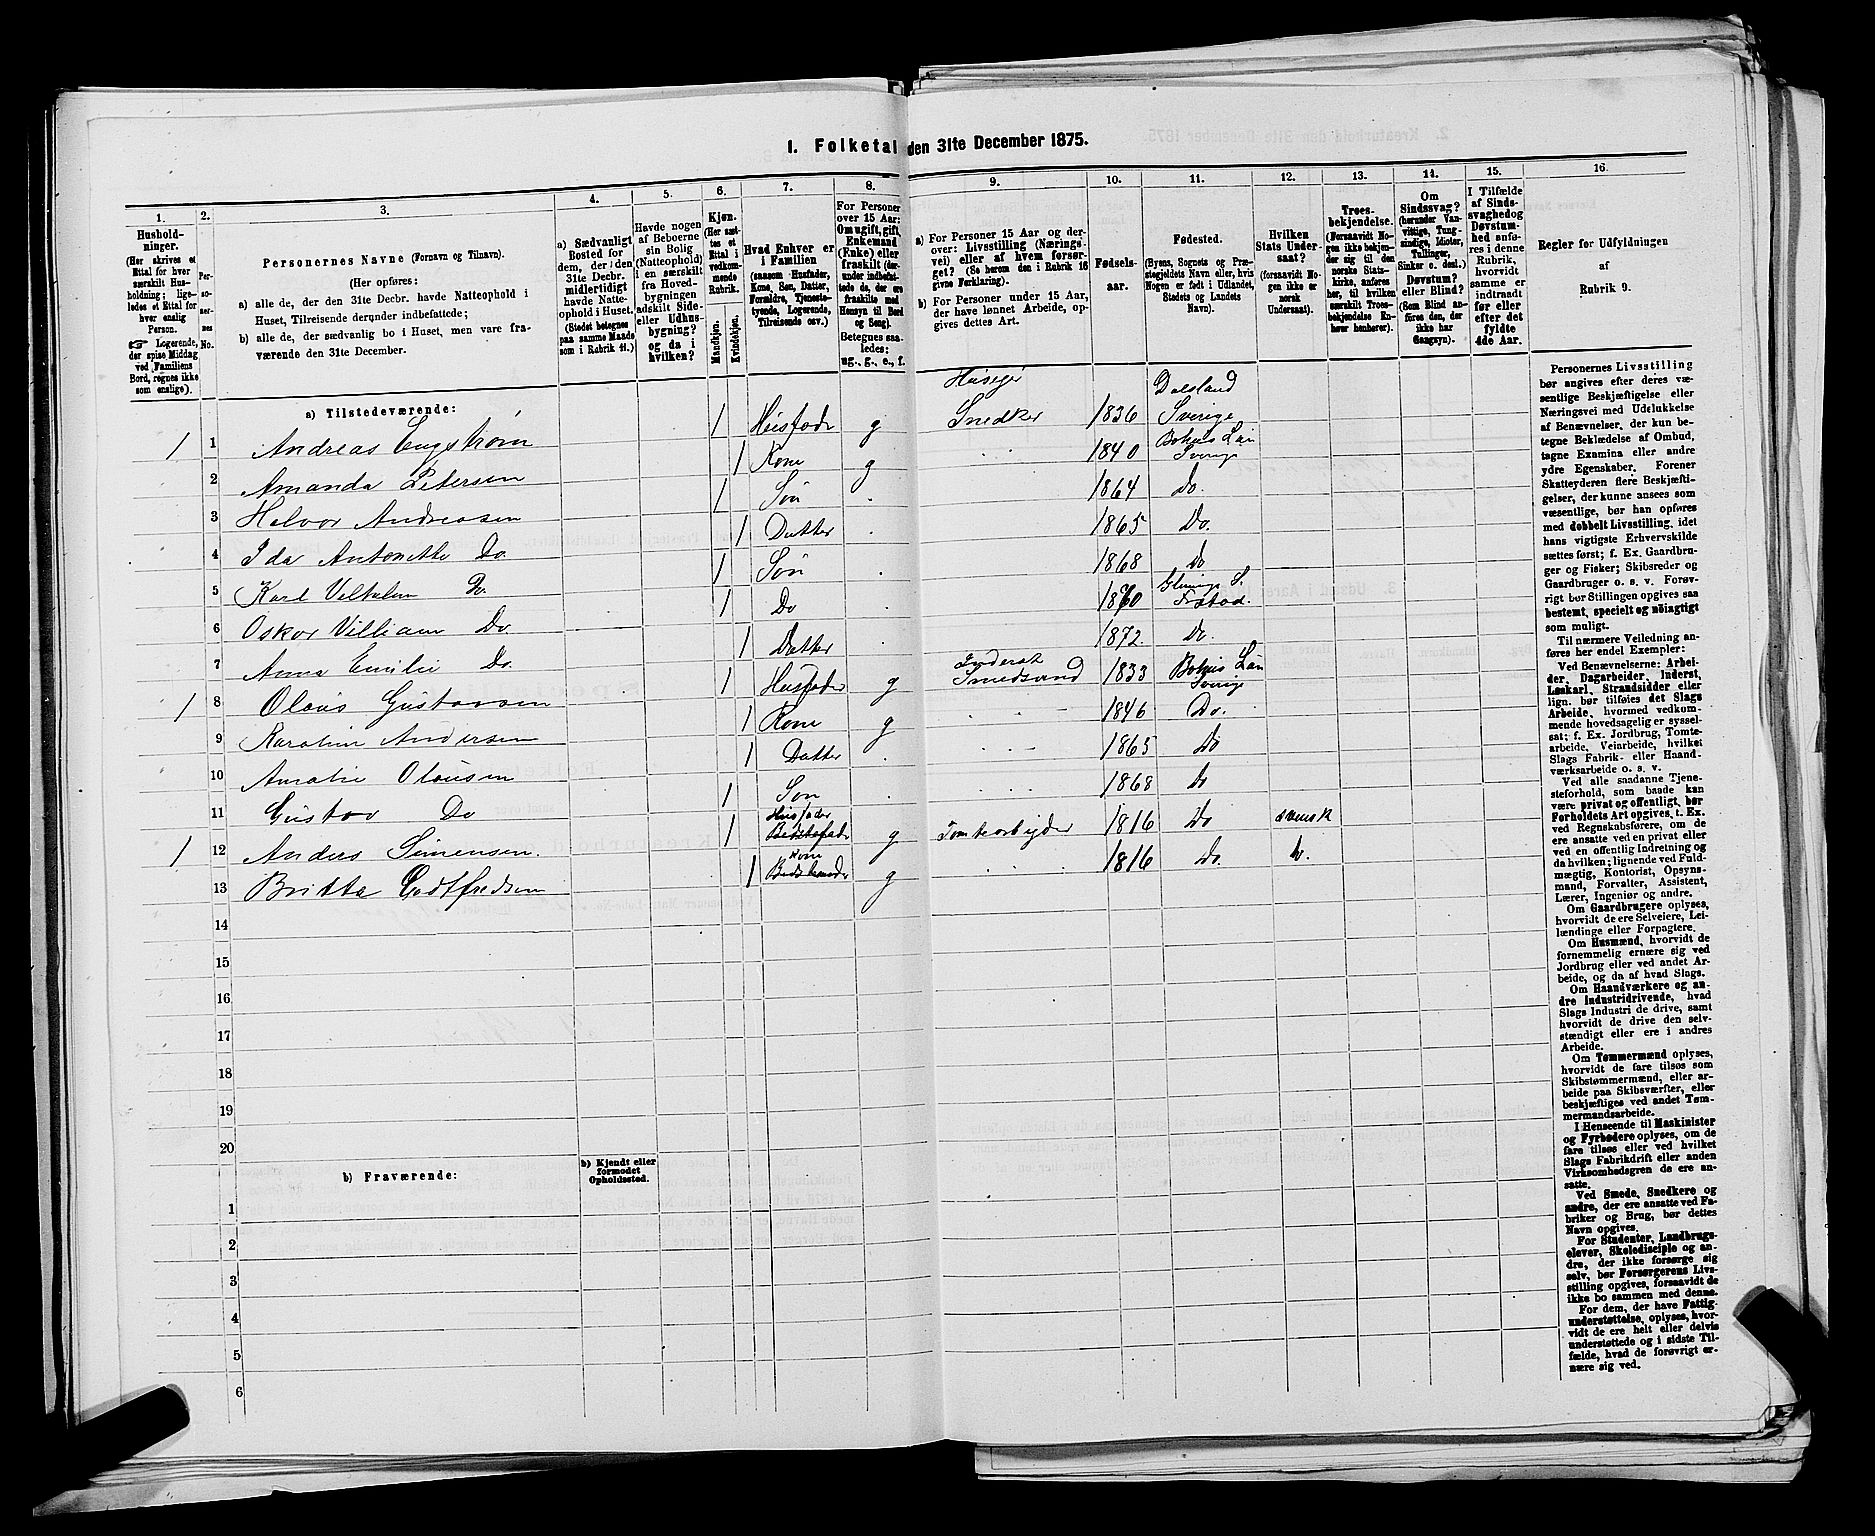 1. Folketal den 31te December 1875.
1. 2. 3. 4. 5. 6. 7. 8. 9. 10. 11. 12. 13. 14. 15. 16.
Husholdninger.
(Her skrives et
Ettal for hver
særskilt Husholdning;
ligeledes et Ettal for
hver enslig
Person.
☞ Logerende,
der spise Middag
ved Familiens
Bord, regnes ikke
som enslige).
Personernes No.
Personernes Navne (Fornavn og Tilnavn).
(Her opføres:
a) alle de, der den 31te Decbr. havde Natteophold i
Huset, Tilreisende derunder indbefattede;
b) alle de, der sædvanlig bo i Huset, men vare fraværende
den 31te December.
a) Sædvanligt
Bosted for
dem, der den
31te Decbr.
midlertidigt
havde Natteophold
i Huset.
(Stedet betegnes
paa samme Maade
som i Rubrik 11.)
Havde nogen
af Beboerne
sin Bolig
(Natteophold)
i en særskilt
fra Hovedbygningen
adskilt Side-
eller Udhusbygning?
og da i
hvilken?
Kjøn.
(Her sættes
et
Ettal i
vedkommende
Rubrik.
Mandkjøn. Kvindekjøn.
Hvad Enhver er
i Familien
(saasom Husfader,
Kone, Søn, Datter,
Forældre, Tjenestetyende,
Logerende,
Tilreisende osv.)
For Personer
over 15 Aar:
Om ugift, gift,
Enkemand
(Enke) eller
fraskilt (derunder
indbefattede
de, der ere
fraskilte med
Hensyn til Bord
og Seng).
Betegnes saaledes:
ug., g., e., f.
a) For Personer 15 Aar og derover:
Livsstilling (Næringsvei)
eller af hvem forsørget?
(Se herom den i Rubrik 16
givne Forklaring.)
b) For Personer under 15 Aar,
der have lønnet Arbeide, opgives
dettes Art.
Fødselsaar.
Fødested.
(Byens, Sognets og Præstegjeldets
Navn eller, hvis
Nogen er født i Udlandet,
Stedets og Landets
Navn).
Hvilken
Stats Undersaat?
(forsaavidt Nogen
ikke er
norsk
Undersaat).
Troesbekjendelse.
(Forsaavidt Nogen
ikke bekjender
sig til den
norske Statskirke,
anføres
her, til hvilken
særskilt Troesbekjendelse
Enhver
henhører).
Om
Sindssvag?
(herunder Vanvittige,
Tungsindige,
Idioter,
Tullinger,
Sinker o. desl.)
Døvstum?
eller Blind?
(Som Blind anføres
den, der
ikke har
Gangsyn).
I Tilfælde
af Sindssvaghed
og
Døvstumhed
anføres
i denne
Rubrik,
hvorvidt
samme er
indtraadt
før eller
efter det
fyldte
4de Aar.
Regler for Udfyldningen
af
Rubrik 9.
a) Tilstedeværende:
Huseier Dalsland
1 1 Andreas Engstrøm 1 Husfader g Snedker 1836 Sverige
2 Amanda Petersen 1 Kone g 1840 Bohus Län Sverige
3 Halvor Andreasen 1 Søn 1864 do.
4 Ida Antonette Do 1 Datter 1865 Do.
5 Karl Vilhelm Do. 1 Søn 1868 Do
6 Oskar Villiam Do. 1 Do 1870 Glemmige S. Frstad.
7 Anna Emilie Do. 1 Datter 1872 Do.
1 8 Olaus Gustavsen 1 Husfader g Inderst Smedsvend 1833 Bohus Län Sverige
9 Karoline Andersen 1 Kone g 1846 Do.
10 Amalie Olausen 1 Datter 1865 Do
11 Gustav Do 1 Søn 1868 Do
1 12 Anders Simensen. 1 Husfader Bedstefader g Tomtearbejder 1816 Do svensk
13 Britta Godtfredsen 1 Kone Bedstemoder g 1816 Do. do.
14
15
16
17
18
19
20
b) Fraværende:
b) Kjendt eller
formodet
Opholdssted.
1
2
3
4
5
6
Personernes Livsstilling
bør angives efter deres væsentlige
Beskjæftigelse eller
Næringsvei med Udelukkelse
af Benævnelser, der kun betegne
Beklædelse af Ombud,
tagne Examina eller andre
ydre Egenskaber. Forener
Skatteyderen flere Beskjæftigelser,
der kunne ansees som
væsentlige, bør han opføres
med dobbelt Livsstilling, idet
hans vigtigste Erhvervskilde
sættes først; f. Ex. Gaardbruger
og Fisker; Skibsreder og
Gaardbruger o. s. v. Forøvrigt
bør Stillingen opgives saa
bestemt, specielt og nöiagtigt
som muligt.
Til nærmere Veiledning anføres
her endel Exempler:
Ved Benævnelserne: Arbeider,
Dagarbeider, Inderst,
Løskarl, Strandsidder eller
lign. bør tilføies det Slags
Arbeide, hvormed vedkommende
hovedsagelig er sysselsat;
f. Ex. Jordbrug, Tomtearbeide,
Veiarbeide, hvilket
Slags Fabrik- eller Haandværksarbeide
o. s. v.
Ved alle saadanne Tjenesteforhold,
som baade kan
være privat og offentligt, bør
Forholdets Art opgives, t. Ex.
ved Regnskabsførere, om de
ere ansatte ved en privat eller
ved en offentlig Indretning og
da hvilken; lignende ved Fuldmægtig,
Kontorist, Opsynsmand,
Forvalter, Assistent,
Lærer, Ingeniør og andre.
Om Gaardbrugere oplyses,
hvorvidt de ere Selveiere, Leilændinge
eller Forpagtere.
Om Husmænd, hvorvidt de
fornemmelig ernære sig ved
Jordbrug eller ved andet Arbeide,
og da af hvad Slags.
Om Haandværkere og andre
Industridrivende, hvad
Slags Industri de drive, samt
hvorvidt de drive den selvstændigt
eller ere i andres
Arbeide.
Om Tømmermænd oplyses,
hvorvidt de fare tilsøs som
Skibstømmermænd, eller arbeide
paa Skibsværfter, eller
beskjæftiges ved andet Tømmermandsarbeide.
I Henseende til Maskinister
og Fyrbødere oplyses, om de
fare tilsøs eller ved hvilket
Slags Fabrikdrift eller anden
Virksomhedsgren de ere ansatte.
Ved Smede, Snedkere og
andre, der ere ansatte ved Fabriker
og Brug, bør dettes
Navn opgives.
For Studenter, Landbrugselever,
Skoledisciple og andre,
der ikke forsørge sig
selv, bør Forsørgerens Livsstilling
opgives, forsaavidt de
ikke bo sammen med denne.
For dem, der have Fattigunderstøttelse,
oplyses, hvorvidt
de ere helt eller delvis
understøttede og i sidste Tilfælde,
hvad de forøvrigt ernære
sig ved.